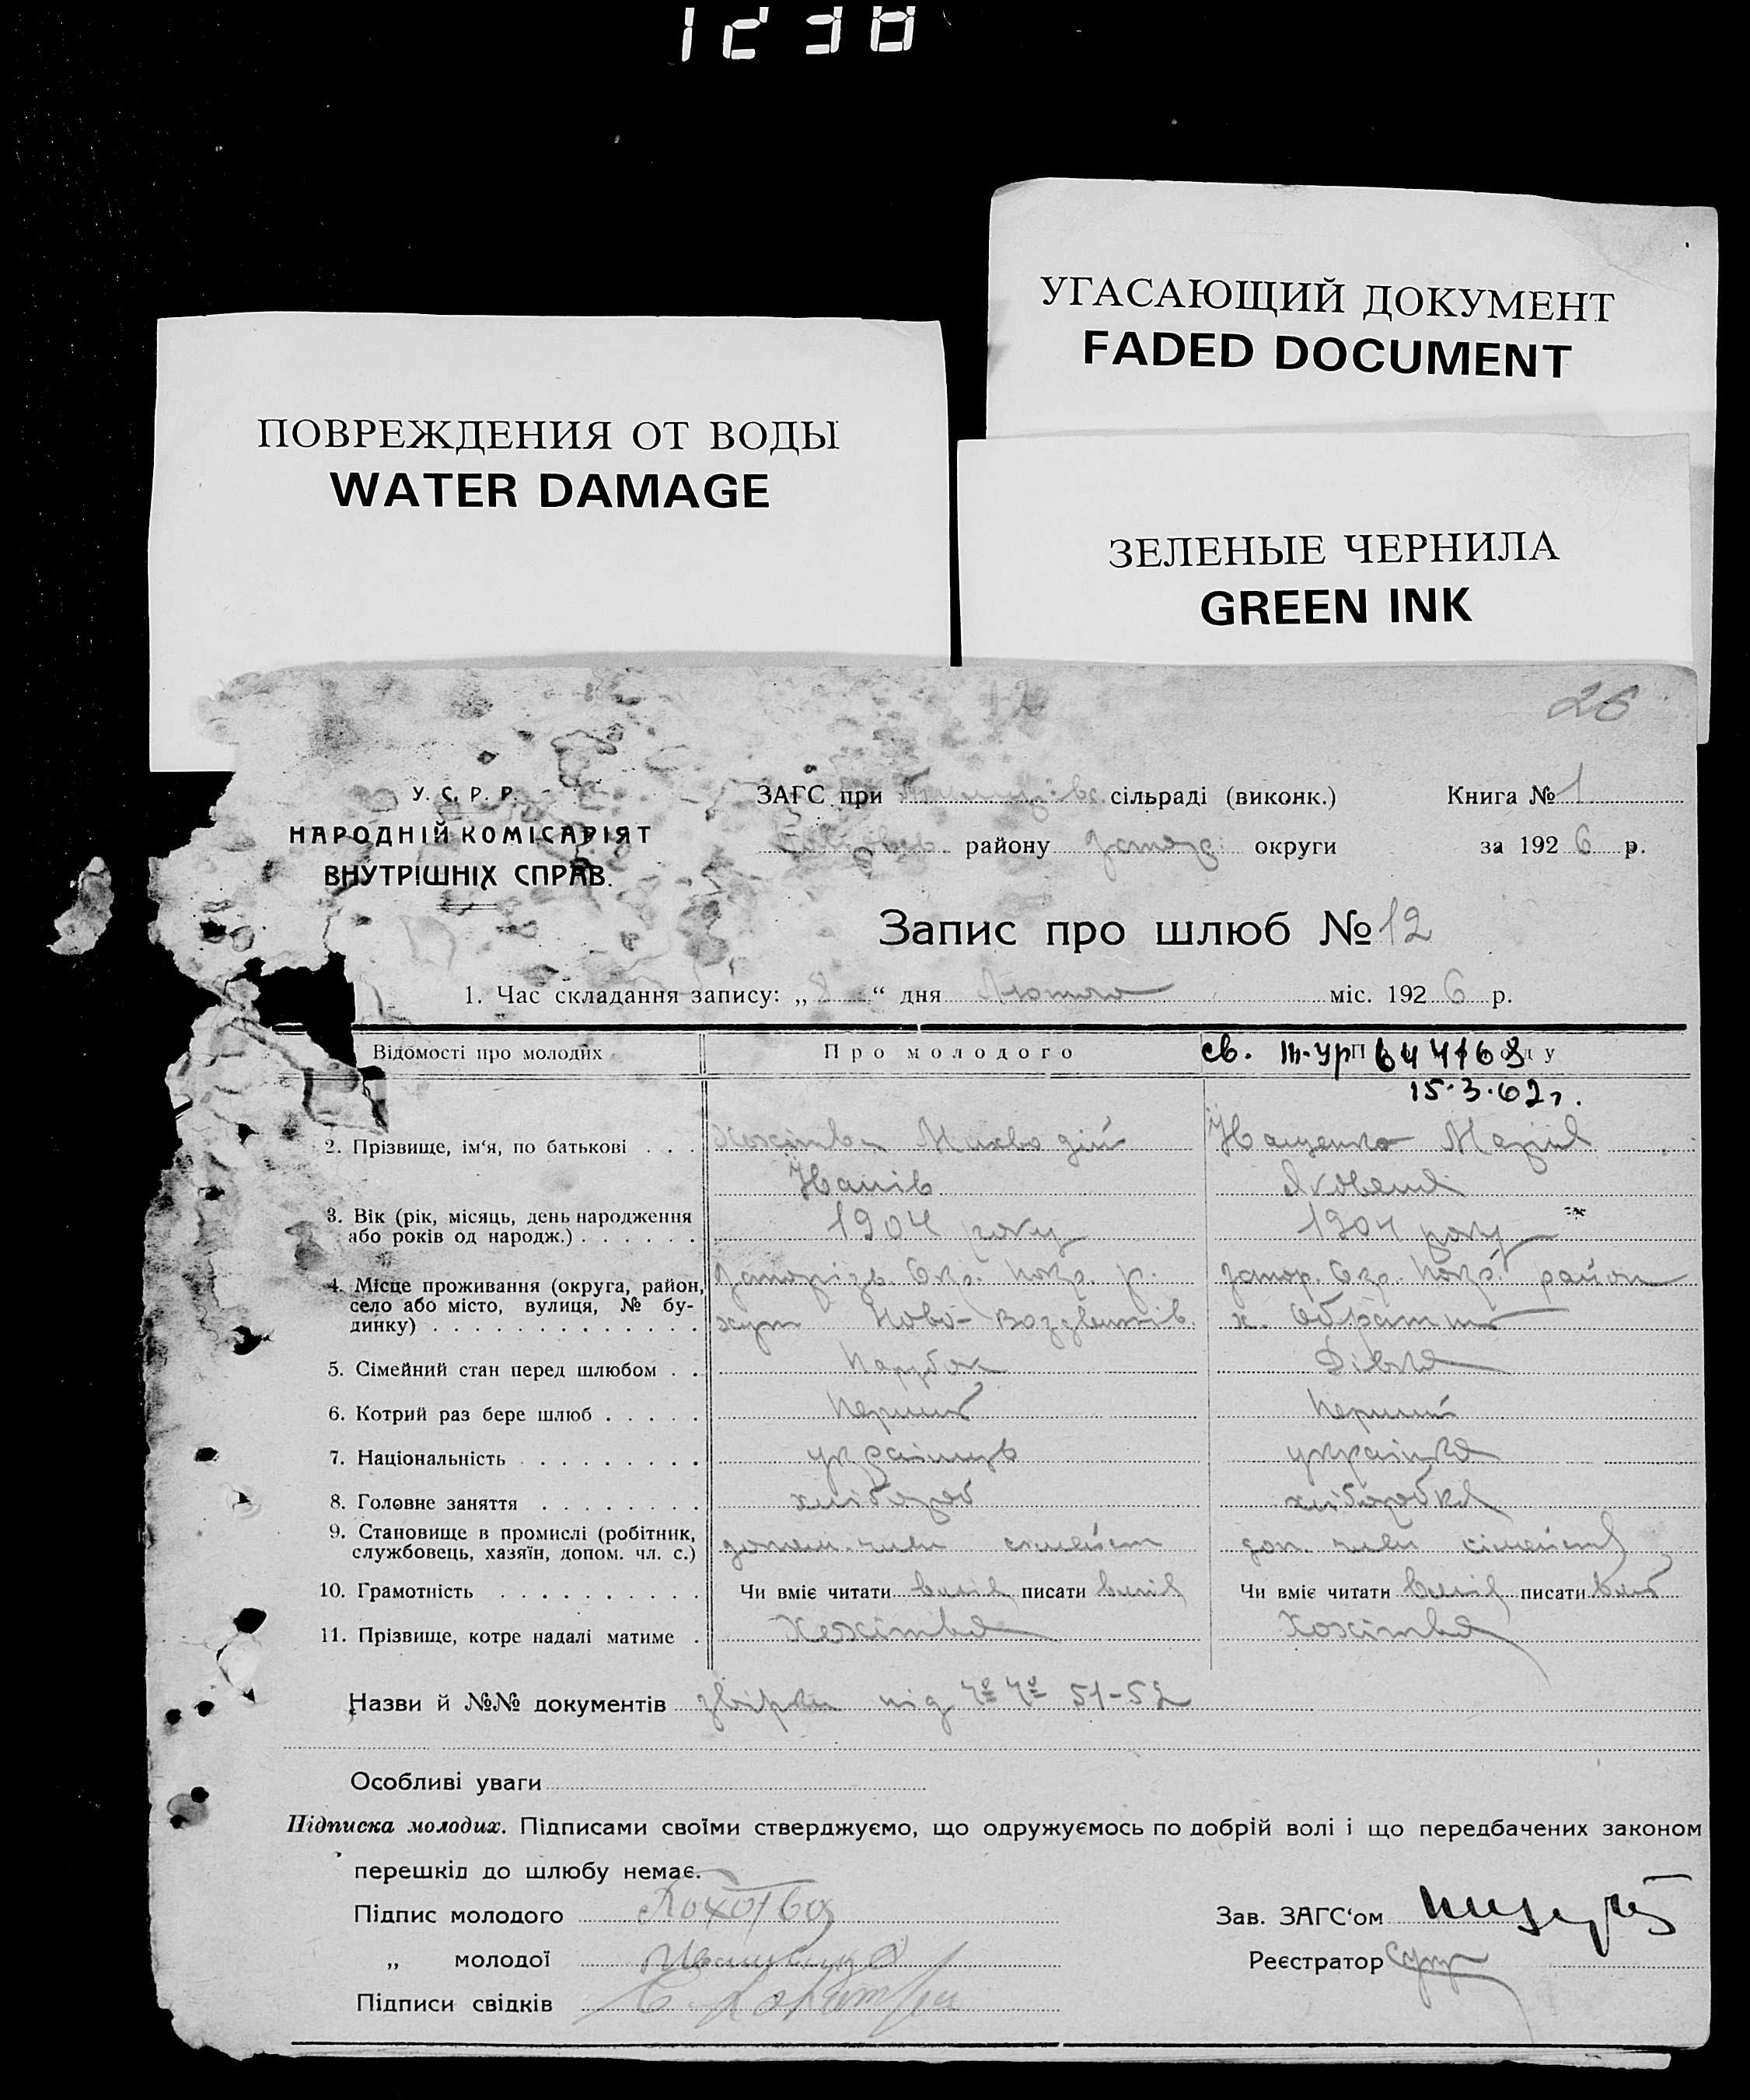 1238
УГАСАЮЩИЙ ДОКУМЕНТ
FADED DOCUMENT
ПОВРЕЖДЕНИЯ ОТ ВОДЫ
WATER DAMAGE
ЗЕЛЕНЫЕ ЧЕРНИЛА
GREEN INK
26
У. С. Р. Р.
НАРОДНІЙ КОМІСАРІЯТ
ВНУТРІШНІХ СПРАВ.
ЗАГС при сільраді (виконк.) Книга № 1
району округи за 1926 р.
Запис про шлюб № 12
1. Час складання запису: „ 8 “ дня Лютого міс. 1926 р.
Відомості про молодих Про молодого св. 644168
15.3.62г.
2. Прізвище, ім‘я, по батькові . . . Нащенко Марія
Яковена
3. Вік (рік, місяць, день народження
або років од народж.) . . . . . . 1904 року 1904 року
4. Місце проживання (округа, район, Запорізь. Окр. Покр. р. Запор. Окр. Покр. район
село або місто, вулиця, № бу- хут Ново- Воздвижів. х.
динку) . . . . . . . . . . . . .
5. Сімейний стан перед шлюбом . . Парубок Дівка
6. Котрий раз бере шлюб . . . . . Перший Перший
7. Національність . . . . . . . . . українць українка
8. Головне заняття . . . . . . . . хлібороб хліборобка
9. Становище в промислі (робітник,
службовець, хазяїн, допом. чл. с.) допом. член сімейст доп. член сімейств
10. Грамотність . . . . . . . . . . Чи вміє читати вміє писати вміє Чи вміє читати вміє писати вміє
11. Прізвище, котре надалі матиме . Хохітва Хохітва
Назви й №№ документів звірки під №№ 51-52
Особливі уваги
Підписка молодих. Підписами своїми стверджуємо, що одружуємось по добрій волі і що передбачених законом
перешкід до шлюбу немає.
Підпис молодого Зав. ЗАГС‘ом
„ молодої Реєстратор
Підписи свідків